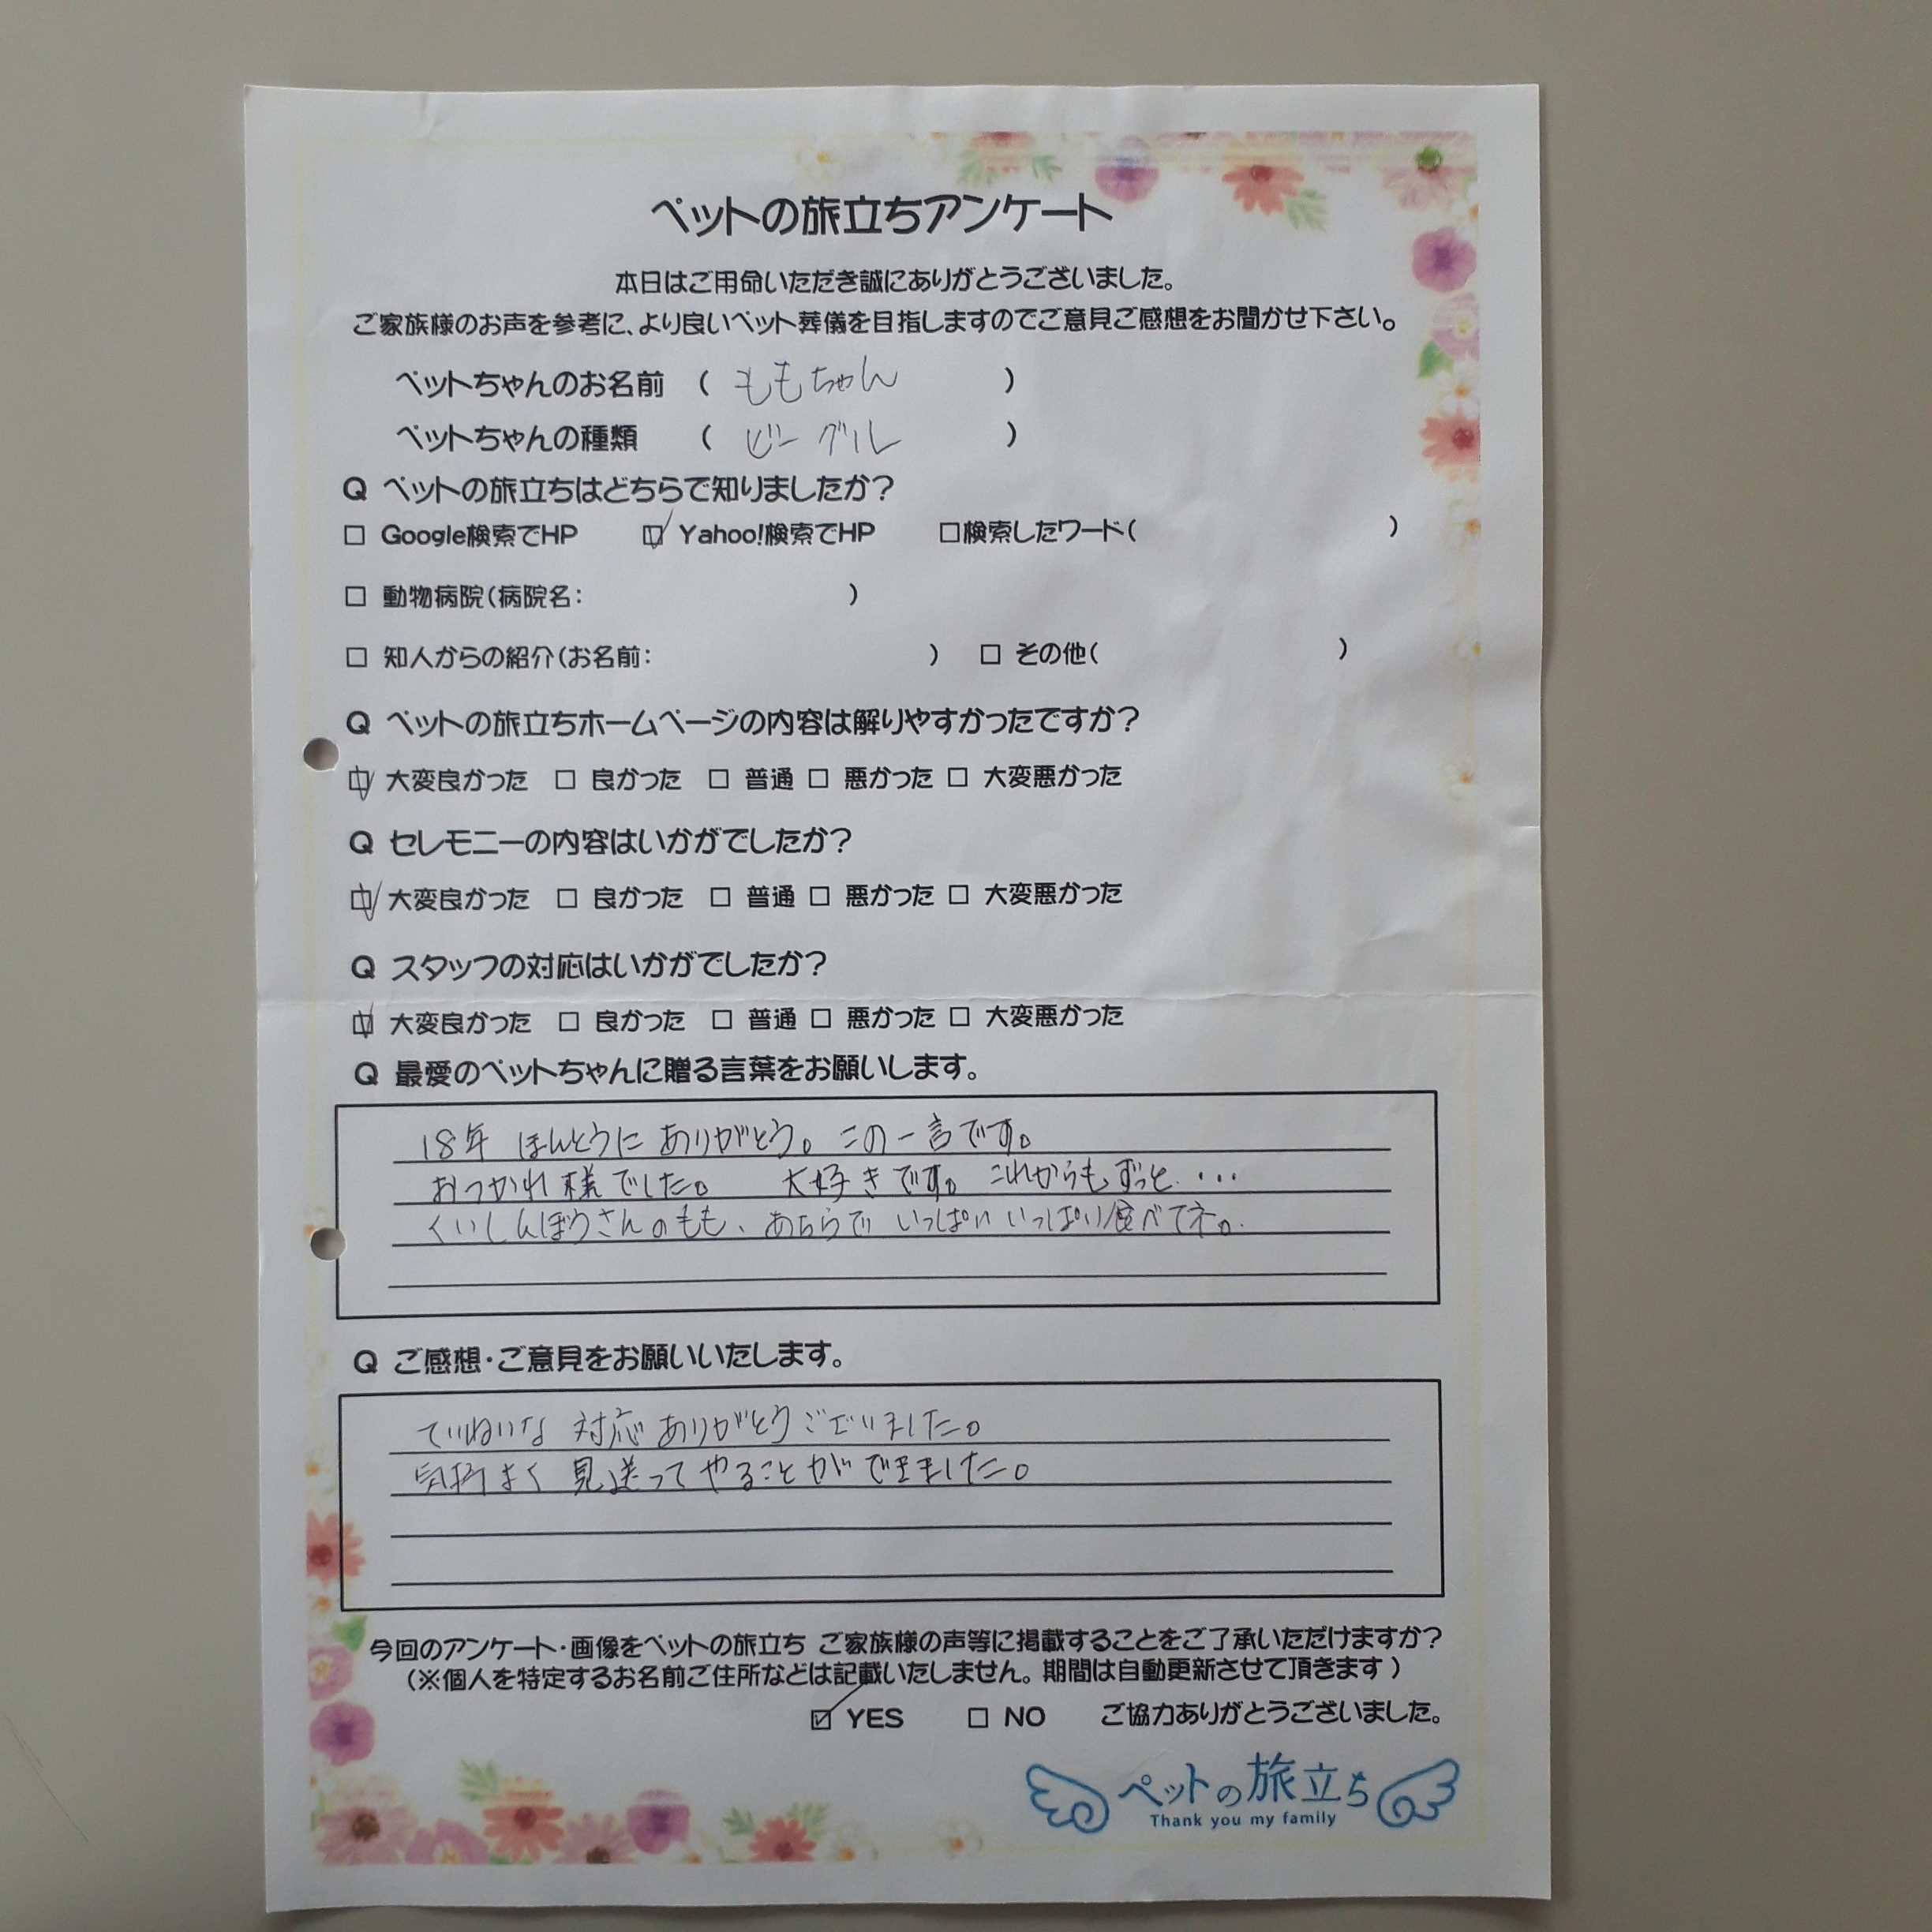 ペットの旅立ちアンケート
本日はご用命いただき誠にありがとうございました。
ご家族様のお声を参考に、より良いペット葬儀を目指しますのでご意見ご感想をお聞かせ下さい。
ペットちゃんのお名前 ( ももちゃん )
ペットちゃんの種類 ( ビーグル )
Q ペットの旅立ちはどちらで知りましたか?
□ Google検索でHP ☑ Yahoo!検索でHP □検索したワード( )
□ 動物病院(病院名: )
□ 知人からの紹介(お名前: ) □ その他( )
Q ペットの旅立ちホームページの内容は解りやすかったですか?
☑ 大変良かった □ 良かった □ 普通 □ 悪かった □ 大変悪かった
Q セレモニーの内容はいかがでしたか?
☑ 大変良かった □ 良かった □ 普通 □ 悪かった □ 大変悪かった
Q スタッフの対応はいかがでしたか?
☑ 大変良かった □ 良かった □ 普通 □ 悪かった □ 大変悪かった
Q 最愛のペットちゃんに贈る言葉をお願いします。
18年 ほんとうに ありがとう。この一言です。
おつかれ様でした。 大好きです。これからもずっと・・・
くいしんぼうさんのもも、あちらで いっぱい いっぱい食べてネ。
Q ご感想・ご意見をお願いいたします。
ていねいな 対応 ありがとうございました。
気持よく 見送ってやることができました。
今回のアンケート・画像をペットの旅立ち ご家族様の声等に掲載することをご了承いただけますか?
(※個人を特定するお名前ご住所などは記載いたしません。期間は自動更新させて頂きます)
☑ YES □ NO ご協力ありがとうございました。
ペットの旅立ち
Thank you my family